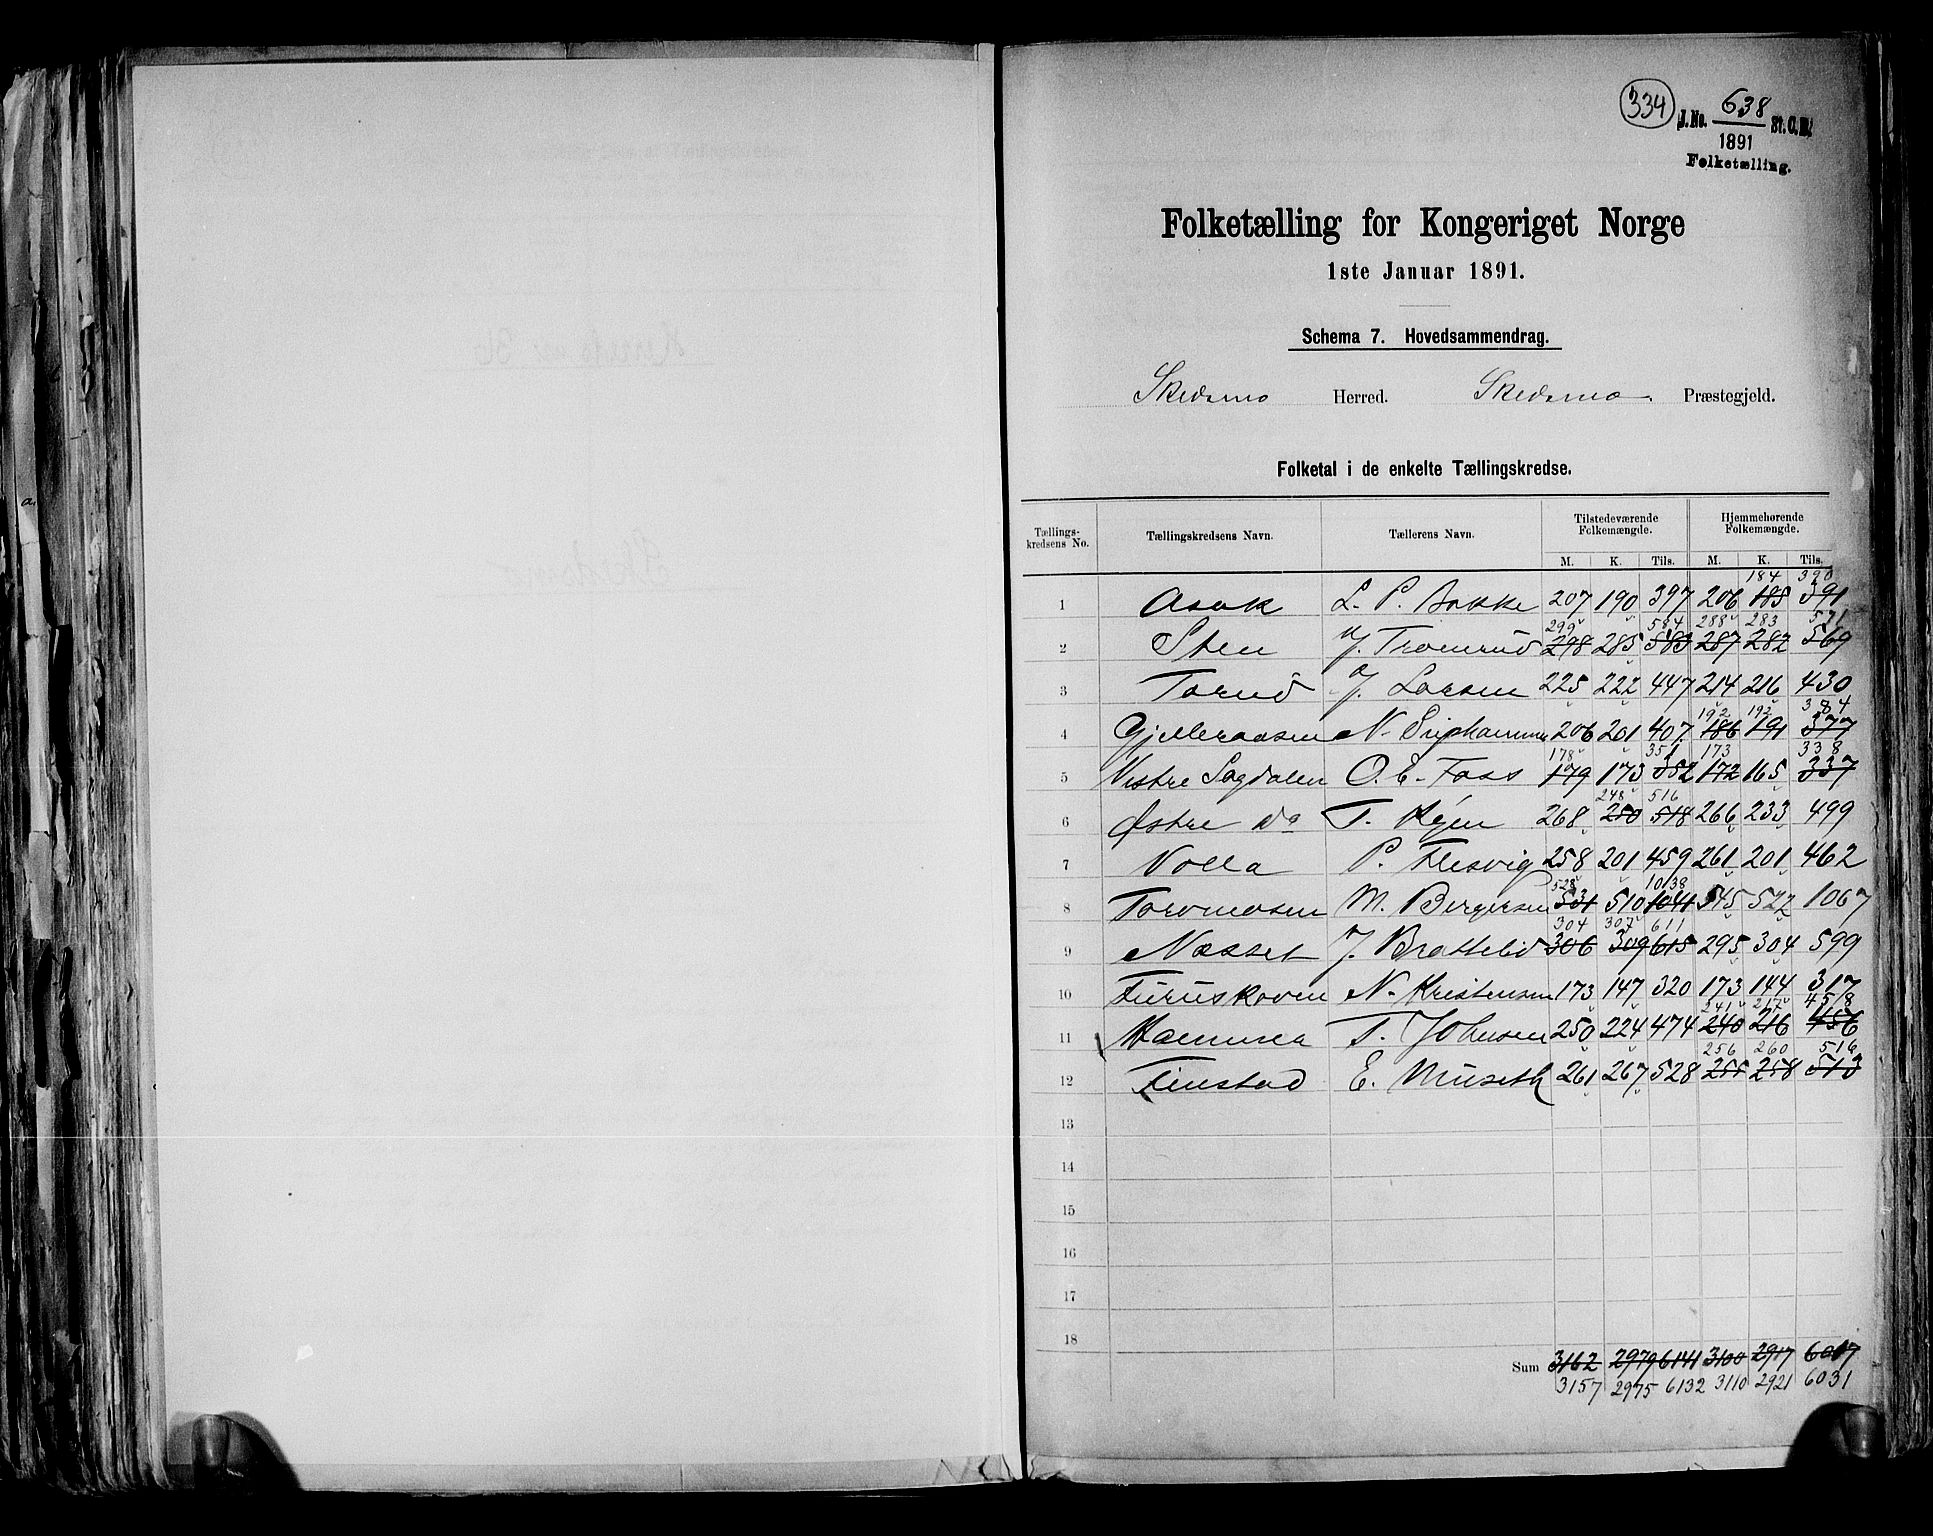 334 J. No. 638 St. C. B.
1891
Folketælling.
Folketælling for Kongeriget Norge
1ste Januar 1891.
Schema 7. Hovedsammendrag.
Skedsmo Herred. Skedsmo Præstegjeld.
Folketal i de enkelte Tællingskredse.
Tællings-kredsens No. Tællingskredsens Navn. Tællerens Navn. Tilstedeværende Folkemængde. Hjemmehørende Folkemængde.
M. K. Tils. M. K. Tils.
184 390
1 Asak L. P. Bakke 207 190 397 206 185 391
299 584 288 283 571
2 Sten J. Tromrud 298 285 583 287 282 569
3 Torud J. Larsen 225 222 447 214 216 430
192 192 384
4 Gjelleraasen N. 206 201 407 186 191 377
178 351 173 338
5 Vestre Sagdalen O. E. Foss 179 173 352 172 165 337
248 516
6 Østre Do T. 268 250 518 266 233 499
7 Volla P. Flesvig 258 201 459 261 201 462
528 1038
8 Toromosen M. Bergersen 531 510 1041 545 522 1067
304 307 611
9 Næsset J. Brattelid 306 309 615 295 304 599
10 Furuskoven N. Kristensen 173 147 320 173 144 317
241 217 458
11 Hammer T. Johnsen 250 224 474 240 216 456
256 260 516
12 Finstad E. Museth 261 267 528 255 258 513
13
14
15
16
17
18
Sum 3162 2979 6141 3100 2917 6017
3157 2975 6132 3110 2921 6031